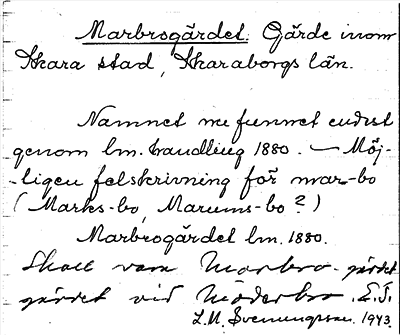 Marbrogärdet. Gärde inom
Skara stad, Skaraborgs län.
Namnet nu funnet endast
genom lm. handling 1880. — Möj-
-ligen felskrivning för mar-bo
(Marks-bo, Marums-bo?)
Marbrogärdet lm. 1880.
Skall vara Marbro-gärdet
gärdet vid Möderbro. E.T.
L.M. Svenungsson. 1943.